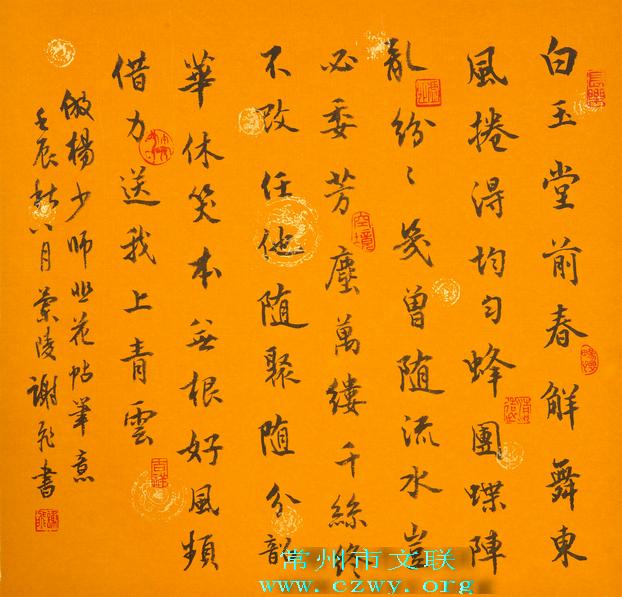 白玉堂前春解舞東
風捲得均匀蜂團蝶陣
亂紛〻幾曾随流水豈
必委芳塵萬縷千絲終
不改任他随聚随分韶
華休笑本無根好風頻
借力送我上青雲
倣楊少師韭花帖筆意
壬辰秋八月蘭陵謝飛書
常州市文联
www.czwy.org